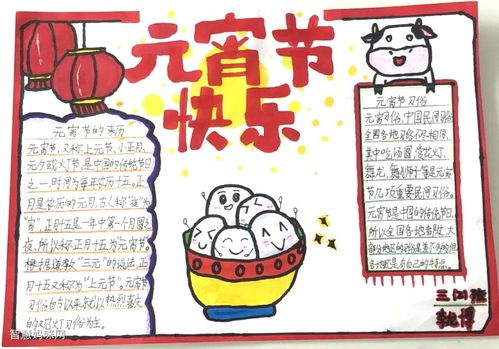 元宵节
快乐
元宵节的来历
元宵节，又称上元节、小正月、
元夕或灯节，是中国的传统节日
之一，时间为每年农历十五。正
月是农历的元月，古人称"夜"为
"宵"，正月十五是一年中第一个月圆之
夜，所以称正月十五为元宵节。
根据道教"三元"的说法，正
月十五又称为"上元节"。元宵节
习俗自古以来就以热烈喜庆
的观灯习俗为主。
元宵节习俗
元宵习俗，中国民间习俗
全国各地习俗不尽相同，
其中吃汤圆、赏花灯、
舞龙、舞狮子等是元宵
节几项重要民间习俗。
元宵节是中国的传统节日，
所以全国各地都过，大
部分地区的习俗是差不多的，但
各地还是有自己的特点。
三(2)班
博
智慧妈咪网